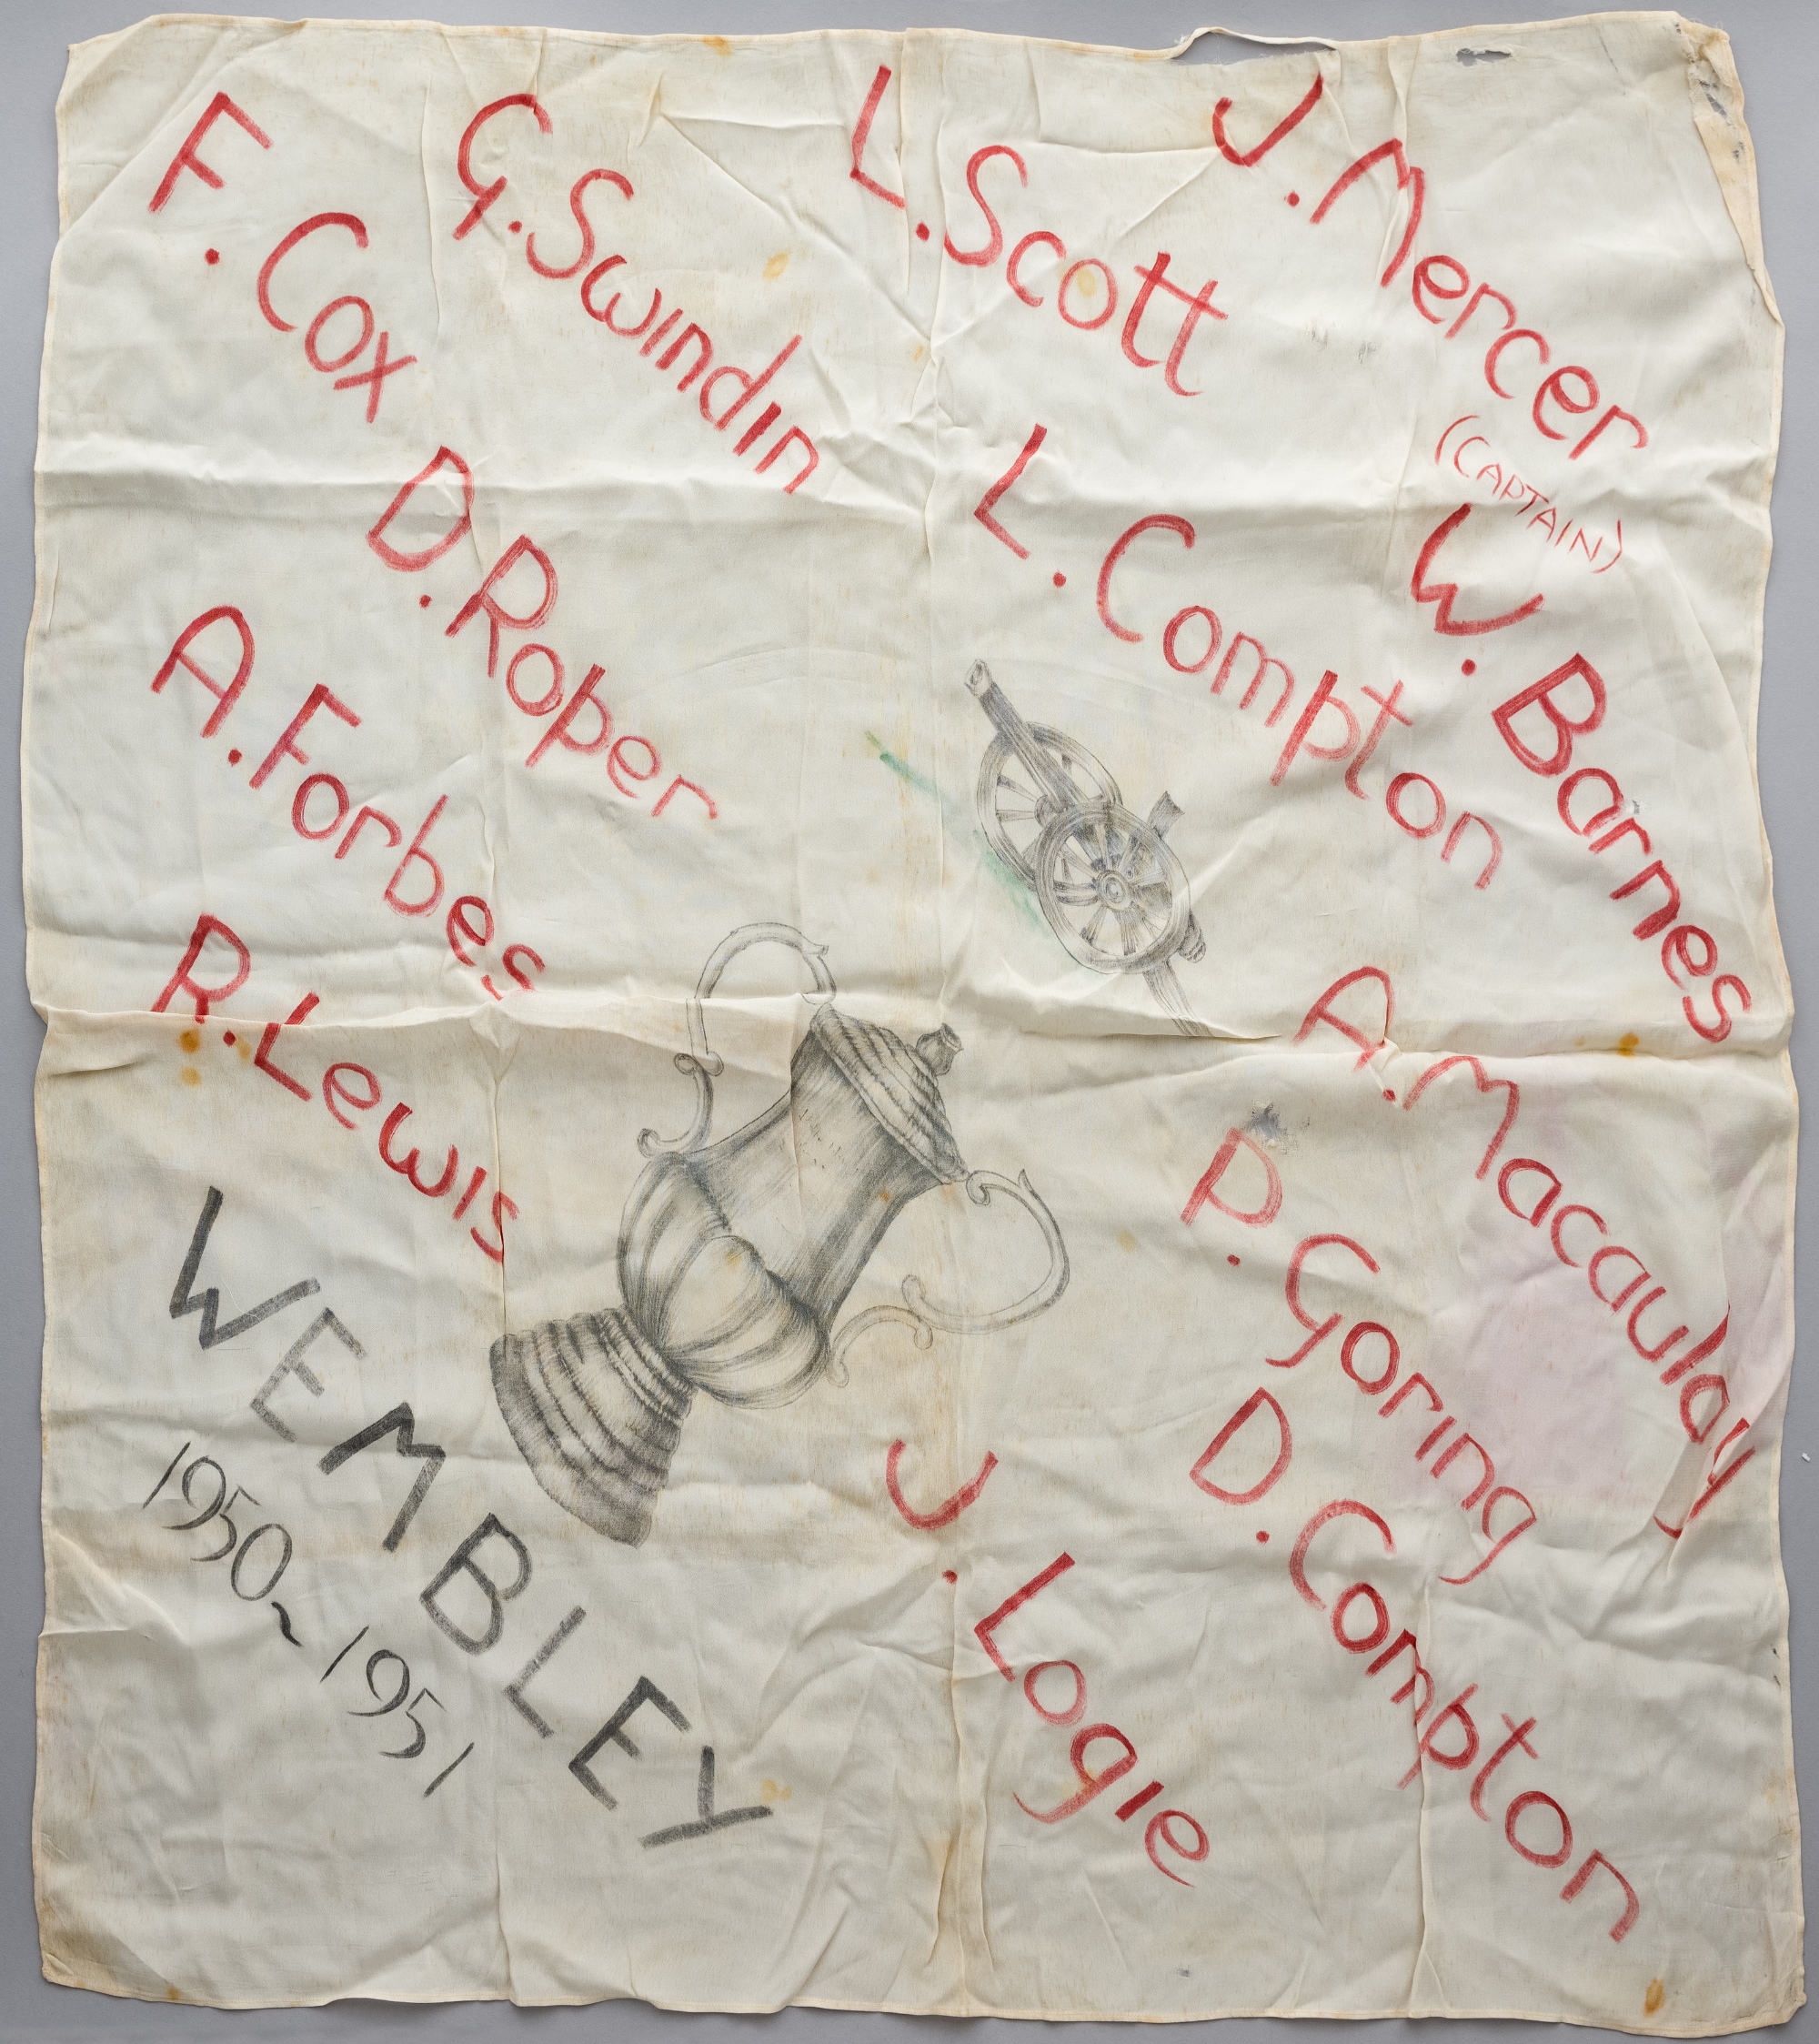 F. Cox
G. Swindin
L. Scott
J. Mercer
(CAPTAIN)
D. Roper
L. Compton
W. Barnes
A. Forbes
R. Lewis
A. Macaulay
P. Goring
D. Compton
J. Logie
WEMBLEY
1950~1951